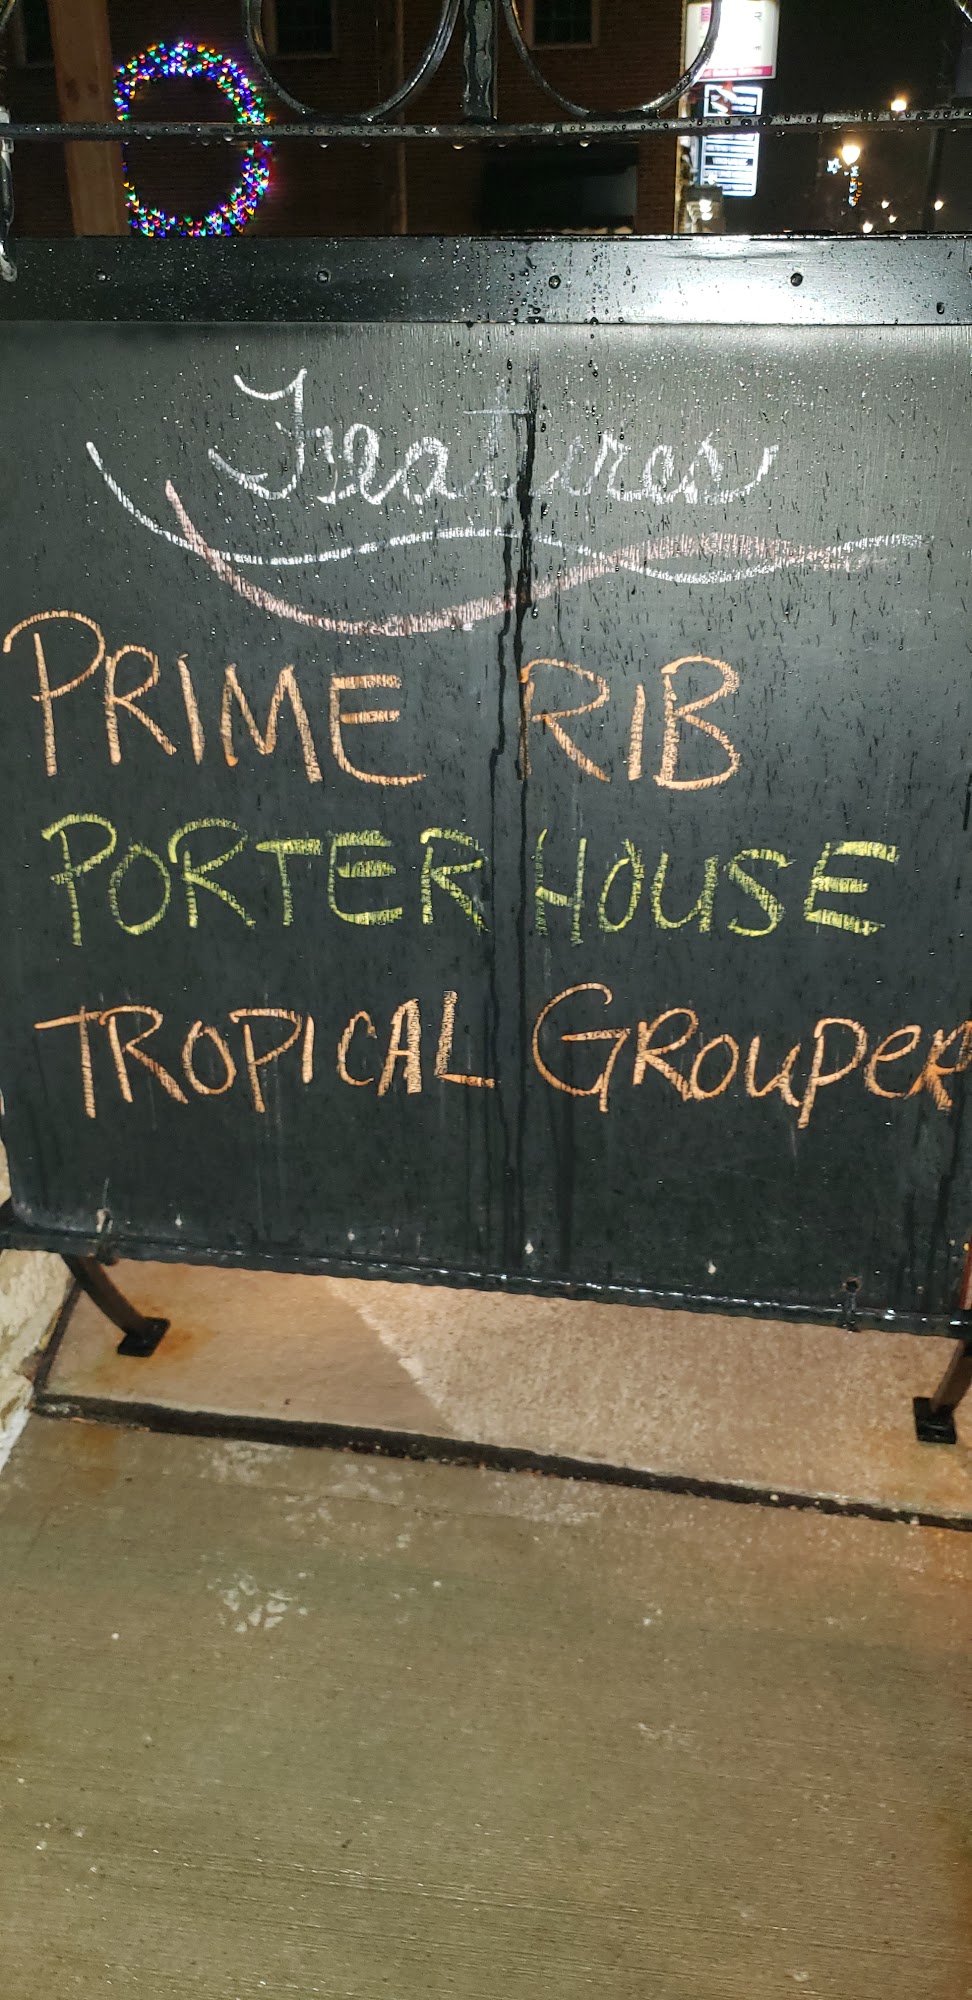 Features
PRIME RIB
PORTERHOUSE
TROPICAL GROUPER